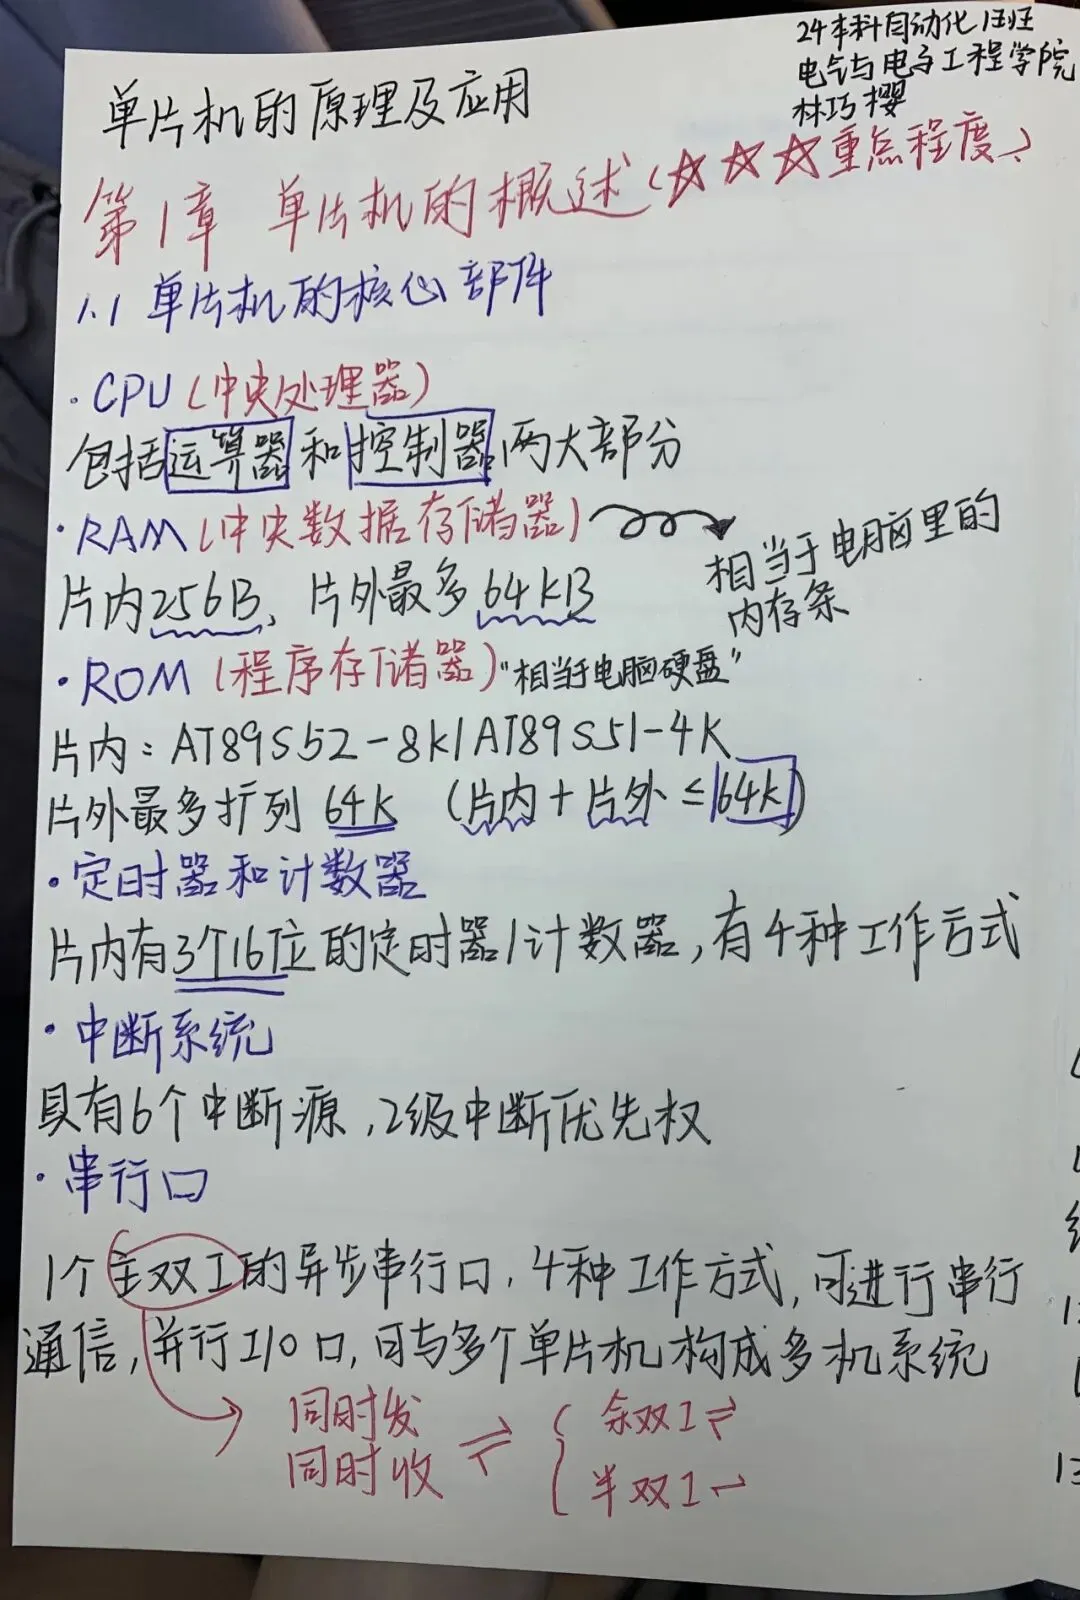 24本科自动化1班
电气与电子工程学院
林巧樱
单片机的原理及应用
第1章 单片机的概述(☆☆☆重点程度)
1.1 单片机的核心部件
·CPU(中央处理器)
包括运算器和控制器两大部分
·RAM(中央数据存储器)
相当于电脑里的
内存条
片内256B、片外最多64KB
·ROM(程序存储器)"相当于电脑硬盘"
片内:AT89S52-8K/AT89S51-4K
片外最多扩列64K (片内+片外≤64K)
·定时器和计数器
片内有3个16位的定时器/计数器,有4种工作方式
·中断系统
具有6个中断源,2级中断优先权
·串行口
1个全双工的异步串行口,4种工作方式,可进行串行
通信,并行I/O口,可与多个单片机构成多机系统
同时发
同时收 ⇌ { 全双工⇌
半双工⇀